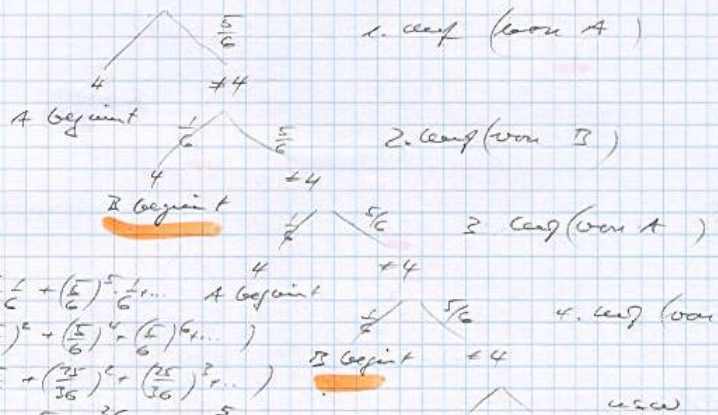 5/6 1. Wurf (von A)
4 ≠4
A beginnt 1/6 5/6 2. Wurf (von B)
4 ≠4
B beginnt 1/6 5/6 3 Wurf (von A)
4 ≠4
1/6 + (5/6)^5 · 1/6 + ... A beginnt
1/6 5/6 4. Wurf (von
)^2 + (5/6)^4 + (5/6)^6 + ... )
B beginnt ≠4
+ (25/36)^2 + (25/36)^3 + ... )
usw